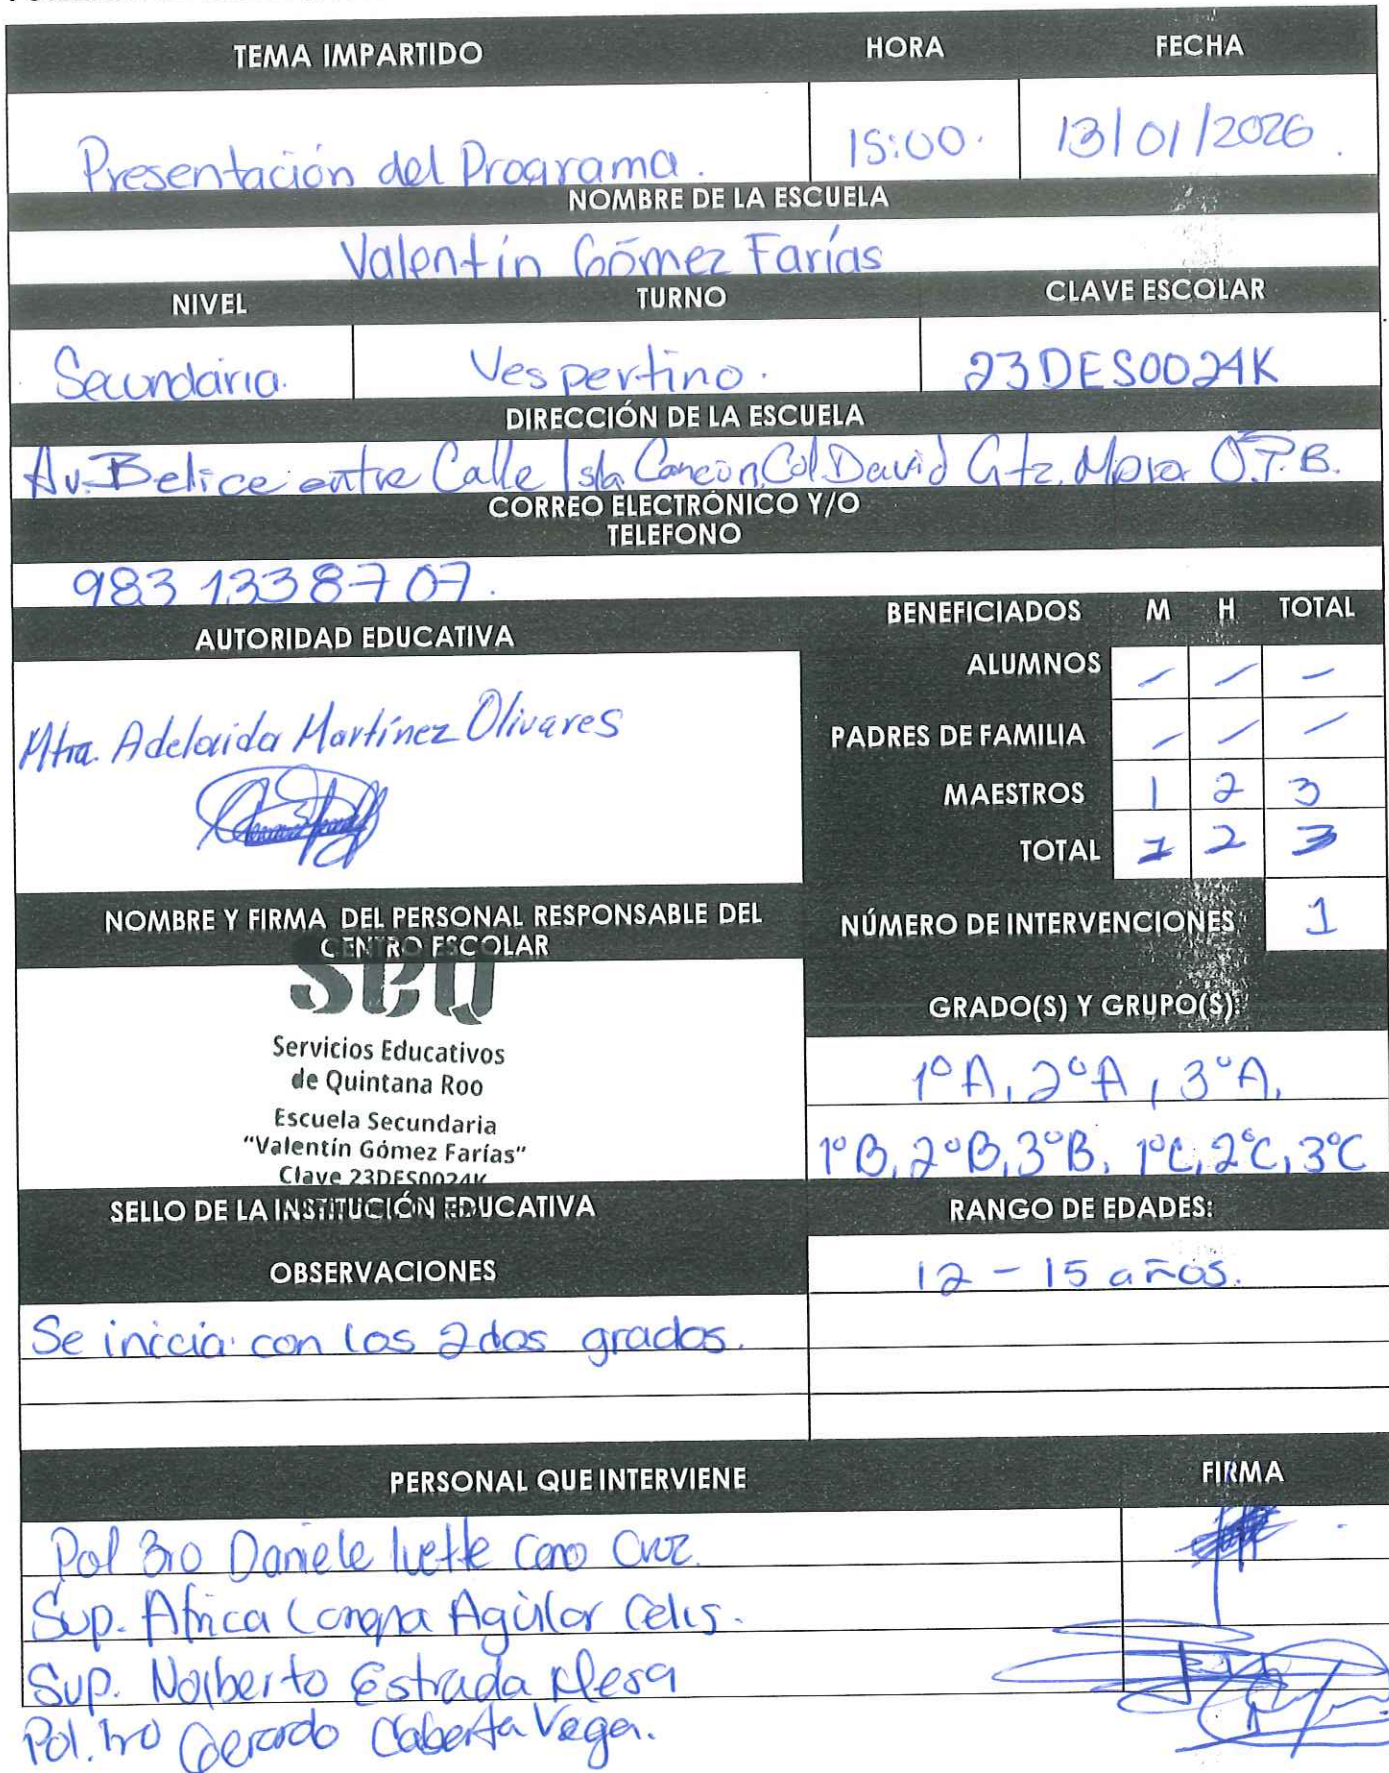 TEMA IMPARTIDO HORA FECHA
Presentación del Programa. 15:00. 13/01/2026.
NOMBRE DE LA ESCUELA
Valentín Gómez Farías
NIVEL TURNO CLAVE ESCOLAR
Secundaria. Vespertino. 23DES0024K
DIRECCIÓN DE LA ESCUELA
Av. Belice entre Calle Isla Cancún, Col. David Gtz. Mora O.P.B.
CORREO ELECTRÓNICO Y/O
TELEFONO
983 133 8707.
AUTORIDAD EDUCATIVA
Mtra. Adelaida Martínez Olivares
BENEFICIADOS M H TOTAL
ALUMNOS - - -
PADRES DE FAMILIA - - -
MAESTROS 1 2 3
TOTAL 1 2 3
NOMBRE Y FIRMA DEL PERSONAL RESPONSABLE DEL
CENTRO ESCOLAR
NÚMERO DE INTERVENCIONES 1
SEQ
Servicios Educativos
de Quintana Roo
Escuela Secundaria
"Valentín Gómez Farías"
Clave 23DES0024K
GRADO(S) Y GRUPO(S):
1º A, 2º A, 3º A,
1º B, 2º B, 3º B, 1º C, 2º C, 3º C
SELLO DE LA INSTITUCIÓN EDUCATIVA
RANGO DE EDADES:
12 - 15 años.
OBSERVACIONES
Se inicia con los 2dos grados.
PERSONAL QUE INTERVIENE FIRMA
Pol 3ro Daniele Ivette Cano Cruz.
Sup. Africa Aguilar Celis.
Sup. Norberto Estrada Mesa
Pol. Gerardo Vega.